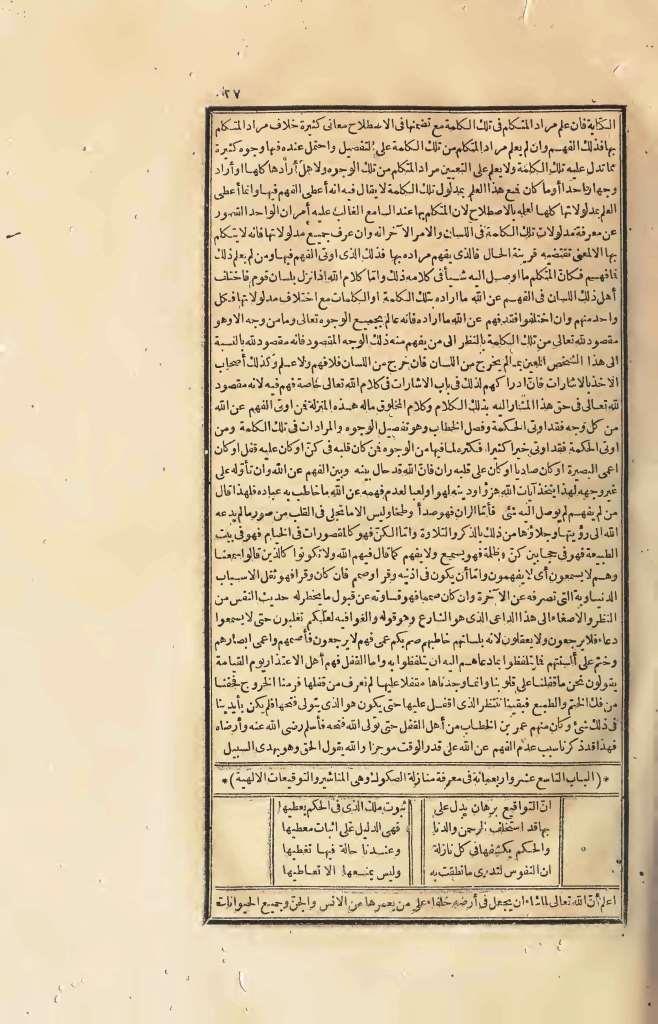 ٢٧
الكتابة فان علم مراد المتكلم في تلك الكلمة مع تضمنها في الاصطلاح معاني كثيرة خلاف مراد المتكلم
بها فذلك الفهم وان لم يعلم مراد المتكلم من تلك الكلمة على التفصيل واحتمل عنده فيها وجوه كثيرة
مما تدل عليه تلك الكلمة ولا يعلم على التعيين مراد المتكلم من تلك الوجوه ولا هل أرادها كلها أو أراد
وجها واحدا أو ما كان فمع هذا العلم بمدلول تلك الكلمة لا يقال فيه انه أعطى الفهم فيها وانما أعطى
العلم بمدلولاتها كلها لعلمه بالاصطلاح لان المتكلم بها عند السامع الغالب عليه أمران الواحد القصور
عن معرفة مدلولات تلك الكلمة في اللسان والامر الآخر انه وان عرف جميع مدلولاتها فانه لا يتكلم
بها الا لمعنى تقتضيه قرينة الحال فالذي يفهم مراده بها فذلك الذي أوتي الفهم فيها ومن لم يعلم ذلك
فما فهم فكان المتكلم ما أوصل اليه شيأ في كلامه ذلك وأما كلام الله اذا نزل بلسان قوم فاختلف
أهل ذلك اللسان في الفهم عن الله ما أراده بتلك الكلمة أو الكلمات مع اختلاف مدلولاتها فكل
واحد منهم وان اختلفوا فقد فهم عن الله ما أراده فانه عالم بجميع الوجوه تعالى وما من وجه الا وهو
مقصود لله تعالى من تلك الكلمة بالنظر الى من يفهم منه ذلك الوجه المقصود فانه مقصود لله بالنسبة
الى هذا الشخص المعين ما لم يخرج من اللسان فان خرج من اللسان فلا فهم ولا علم وكذلك أصحاب
الاخذ بالاشارات فان ادراكهم لذلك في باب الاشارات في كلام الله تعالى خاصة فهم فيه لانه مقصود
لله تعالى في حق هذا المشار اليه بذلك الكلام وكلام المخلوق ماله هذه المنزلة فمن أوتي الفهم عن الله
من كل وجه فقد أوتي الحكمة وفصل الخطاب وهو تفصيل الوجوه والمرادات في تلك الكلمة ومن
أوتي الحكمة فقد أوتي خيرا كثيرا فكثره لما فيها من الوجوه فمن كان قلبه في كن أو كان عليه قفل أو كان
أعمى البصيرة أو كان صاديا أو كان على قلبه ران فان الله قد حال بينه وبين الفهم عن الله وان تأوله على
غير وجهه لهذا يتخذ آيات الله هزؤا ودينه لهوا ولعبا لعدم فهمه عن الله ما خاطب به عباده فلهذا قال
من لم يفهم لم يوصل اليه شئ فأما الران فهو صدأ وطخاء وليس الا ما تجلى في القلب من صور ما لم يدعه
الله الى رؤيتها وجلاؤها من ذلك بالذكر والتلاوة وأما الكن فهو كالمقصورات في الخيام فهو في بيت
الطبيعة فهو في حجابين كن وظلمة فهو يسمع ولا يفهم كما قال فيهم الله ولا تكونوا كالذين قالوا سمعنا
وهم لا يسمعون أي لا يفهمون وأما أن يكون في أذنيه وقر أو صمم فان كان وقرا فهو ثقل الاسباب
الدنياوية التي تصرفه عن الآخرة وان كان صمما فهو قساوته عن قبول ما يخطر له حديث النفس من
النظر والاصغاء الى هذا الداعي الذي هو الشارع وهو قوله والغوا فيه لعلكم تغلبون حتى لا يسمعوا
دعاء فلا يرجعون ولا يعقلون لانه بلسانهم خاطبهم صم بكم عمي فهم لا يرجعون فأصمهم وأعمى أبصارهم
وختم على ألسنتهم فما تلفظوا بما دعاهم اليه ان يتلفظوا به وأما القفل فهم أهل الاعتذار يوم القيامة
يقولون نحن ما قفلنا على قلوبنا وانما وجدناها مقفلا عليها لم نعرف من قفلها فرمنا الخروج فخفنا
من فك الختم والطبع فبقينا ننتظر الذي أقفل عليها حتى يكون هو الذي يتولى فتحها فلم يكن بأيدينا
في ذلك شئ وكان منهم عمر بن الخطاب من أهل القفل حتى تولى الله فتحه فأسلم رضي الله عنه وأرضاه
فهذا قد ذكرنا سبب عدم الفهم عن الله على قدر الوقت موجزا والله يقول الحق وهو يهدى السبيل
*(الباب التاسع عشر وأربعمائة في معرفة منازلة الصكوك وهي المناشير والتوقيعات الالهية)*
ان التواقيع برهان يدل على ثبوت ملك الذي في الحكم يعطيها
بها قد استخلف الرحمن والدنا فهي الدليل على اثبات معطيها
والحكم يكشفها في كل نازلة وعندنا حالة فيها تغطيها
ان النفوس لتدري ما نطقت به وليس يمنعها الا تعاطيها
اعلم أن الله تعالى لما شاء ان يجعل في أرضه خلفاء على من يعمرها من الانس والجن وجميع الحيوانات